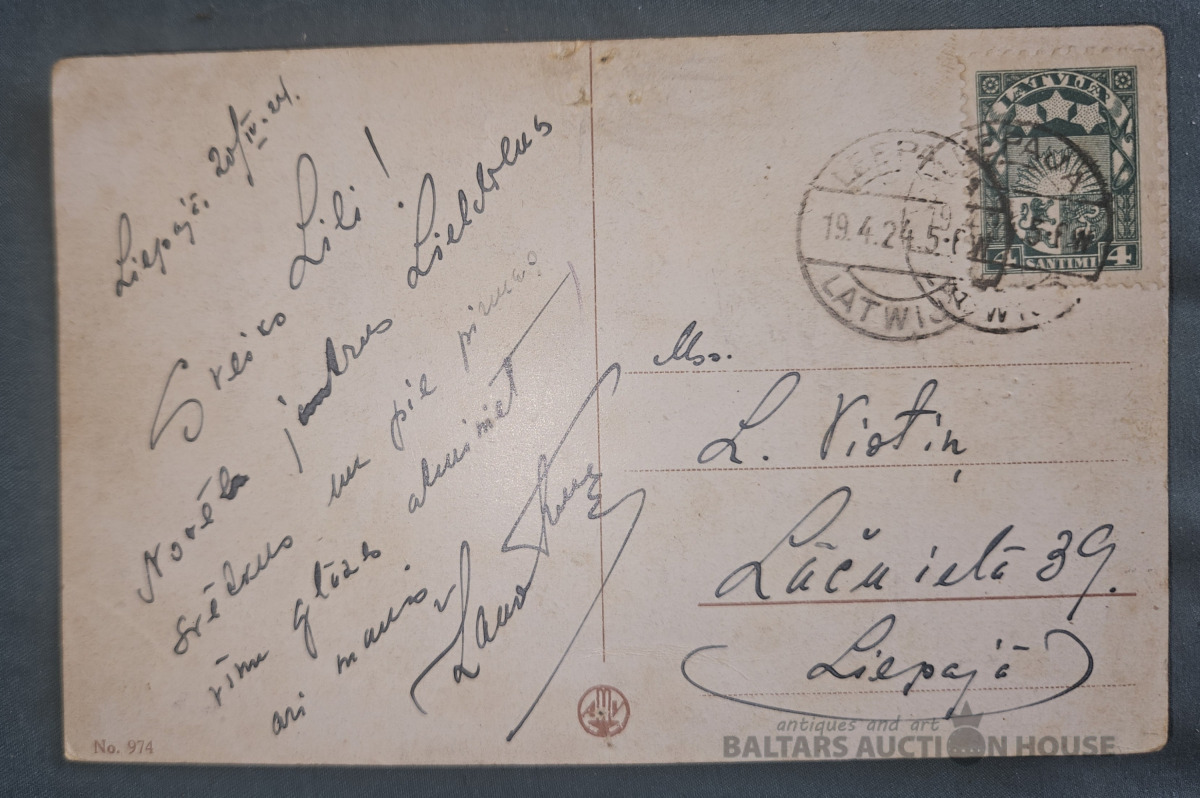 Liepājā, 20/IV.24.
Sveiks Lili!
Novēlu jautrus Lieldienas
svētkus un pie pirmās
vīna glāzes atminiet
arī mani.
LATVIJA
4 SANTIMI 4
LEEPAJA
19.4.24.5-6
LATWIJA
19.4.
L. Vistiņ
Lāču ielā 39.
Liepājā
No. 974
antiques and art
BALTARS AUCTION HOUSE